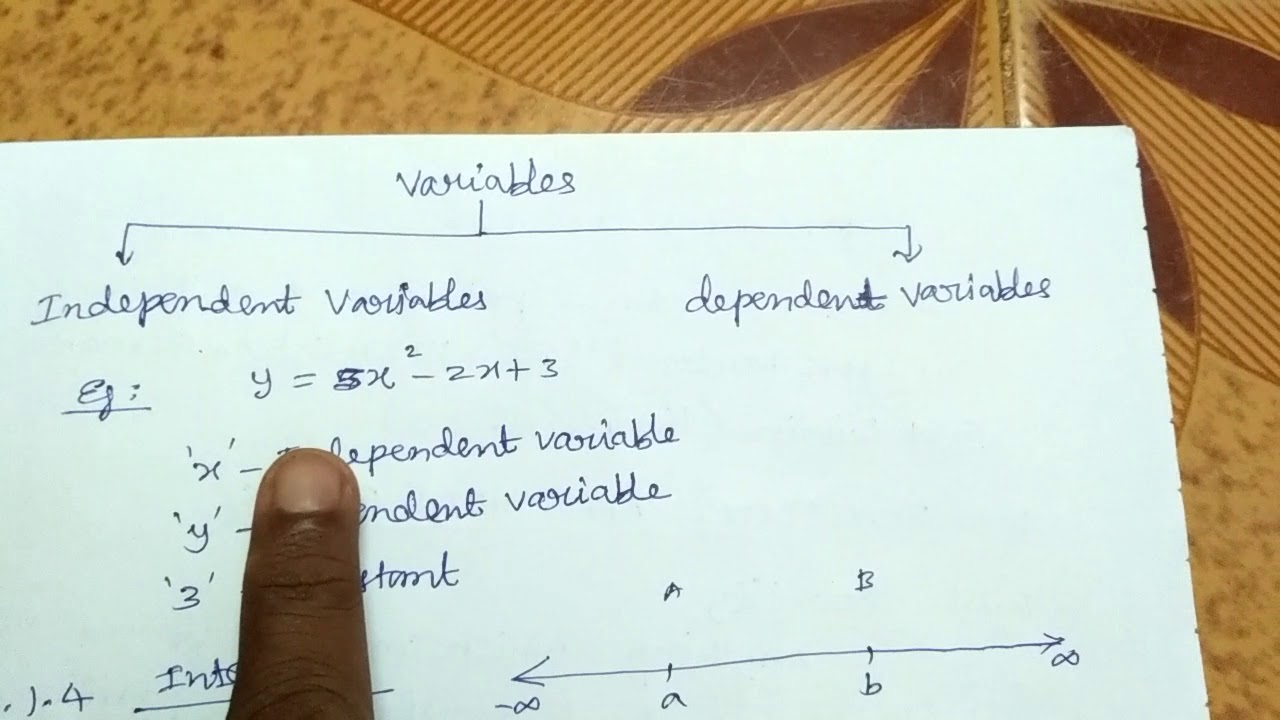 Variables
Independent Variables dependent variables
Eg: y = 5x² - 2x + 3
'x' - dependent variable
'y' - variable
'3'
A B
-∞ a b ∞
.).4